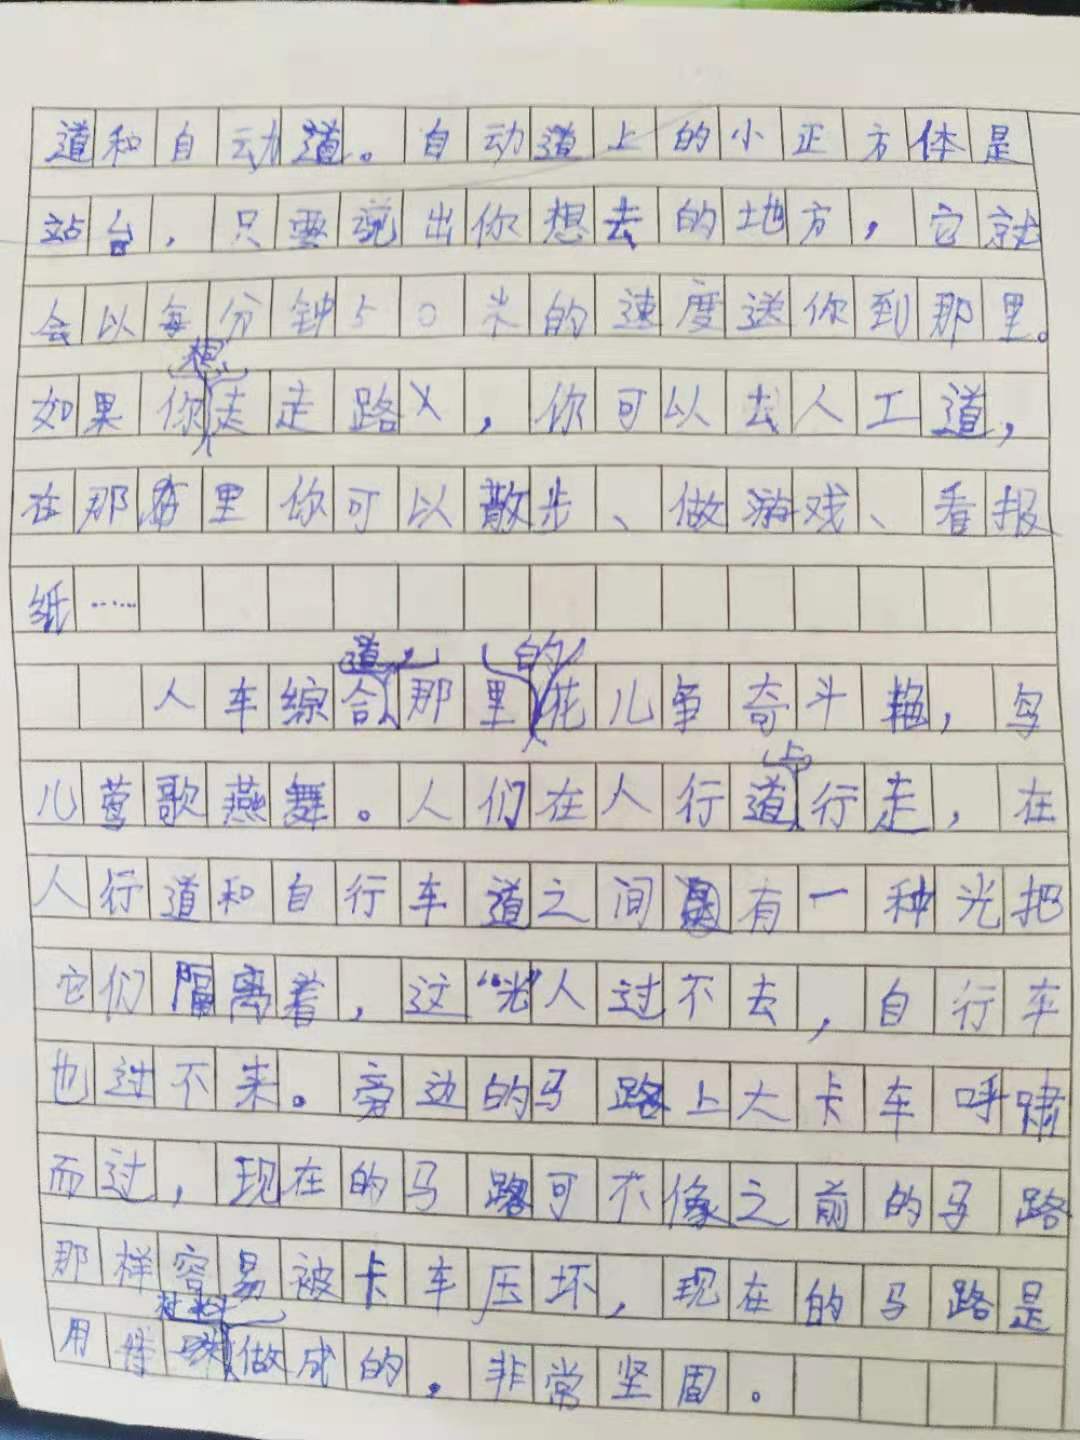 道和自动道。自动道上的小正方体是
站台，只要说出你想去的地方，它就
会以每分钟50米的速度送你到那里。
如果你想走走路，你可以去人工道，
在那里你可以散步、做游戏、看报
纸……
人车综合道，那里的花儿争奇斗艳，鸟
儿莺歌燕舞。人们在人行道上行走，在
人行道和自行车道之间有一种光把
它们隔离着，这“光”人过不去，自行车
也过不来。旁边的马路上大卡车呼啸
而过，现在的马路可不像之前的马路
那样容易被卡车压坏，现在的马路是
用特殊材料做成的，非常坚固。